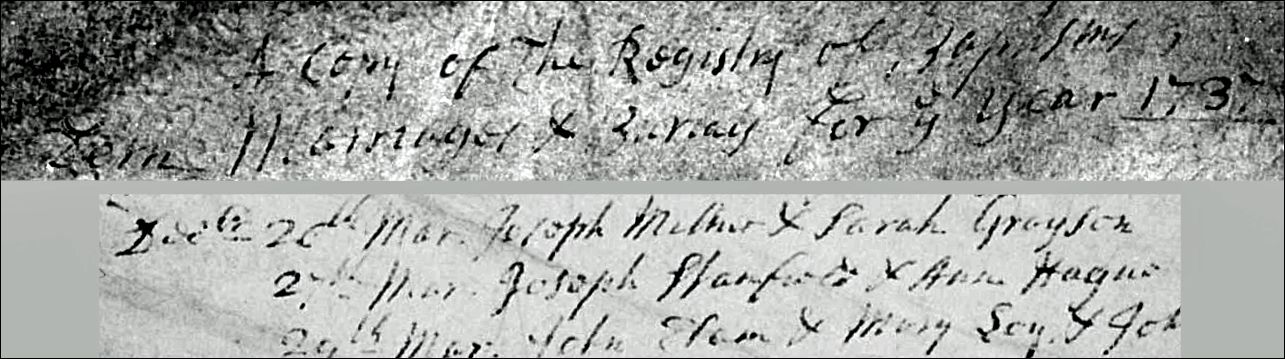 A Copy of The Registry of Baptisms,
Marriages & Burials for ye Year 1737
Decbr 26th Mar. Joseph Milner & Sarah Grayson
27th Mar. Joseph Stanfield & Ann Hague
29th Mar. John Ham & Mary Loy, & Joh